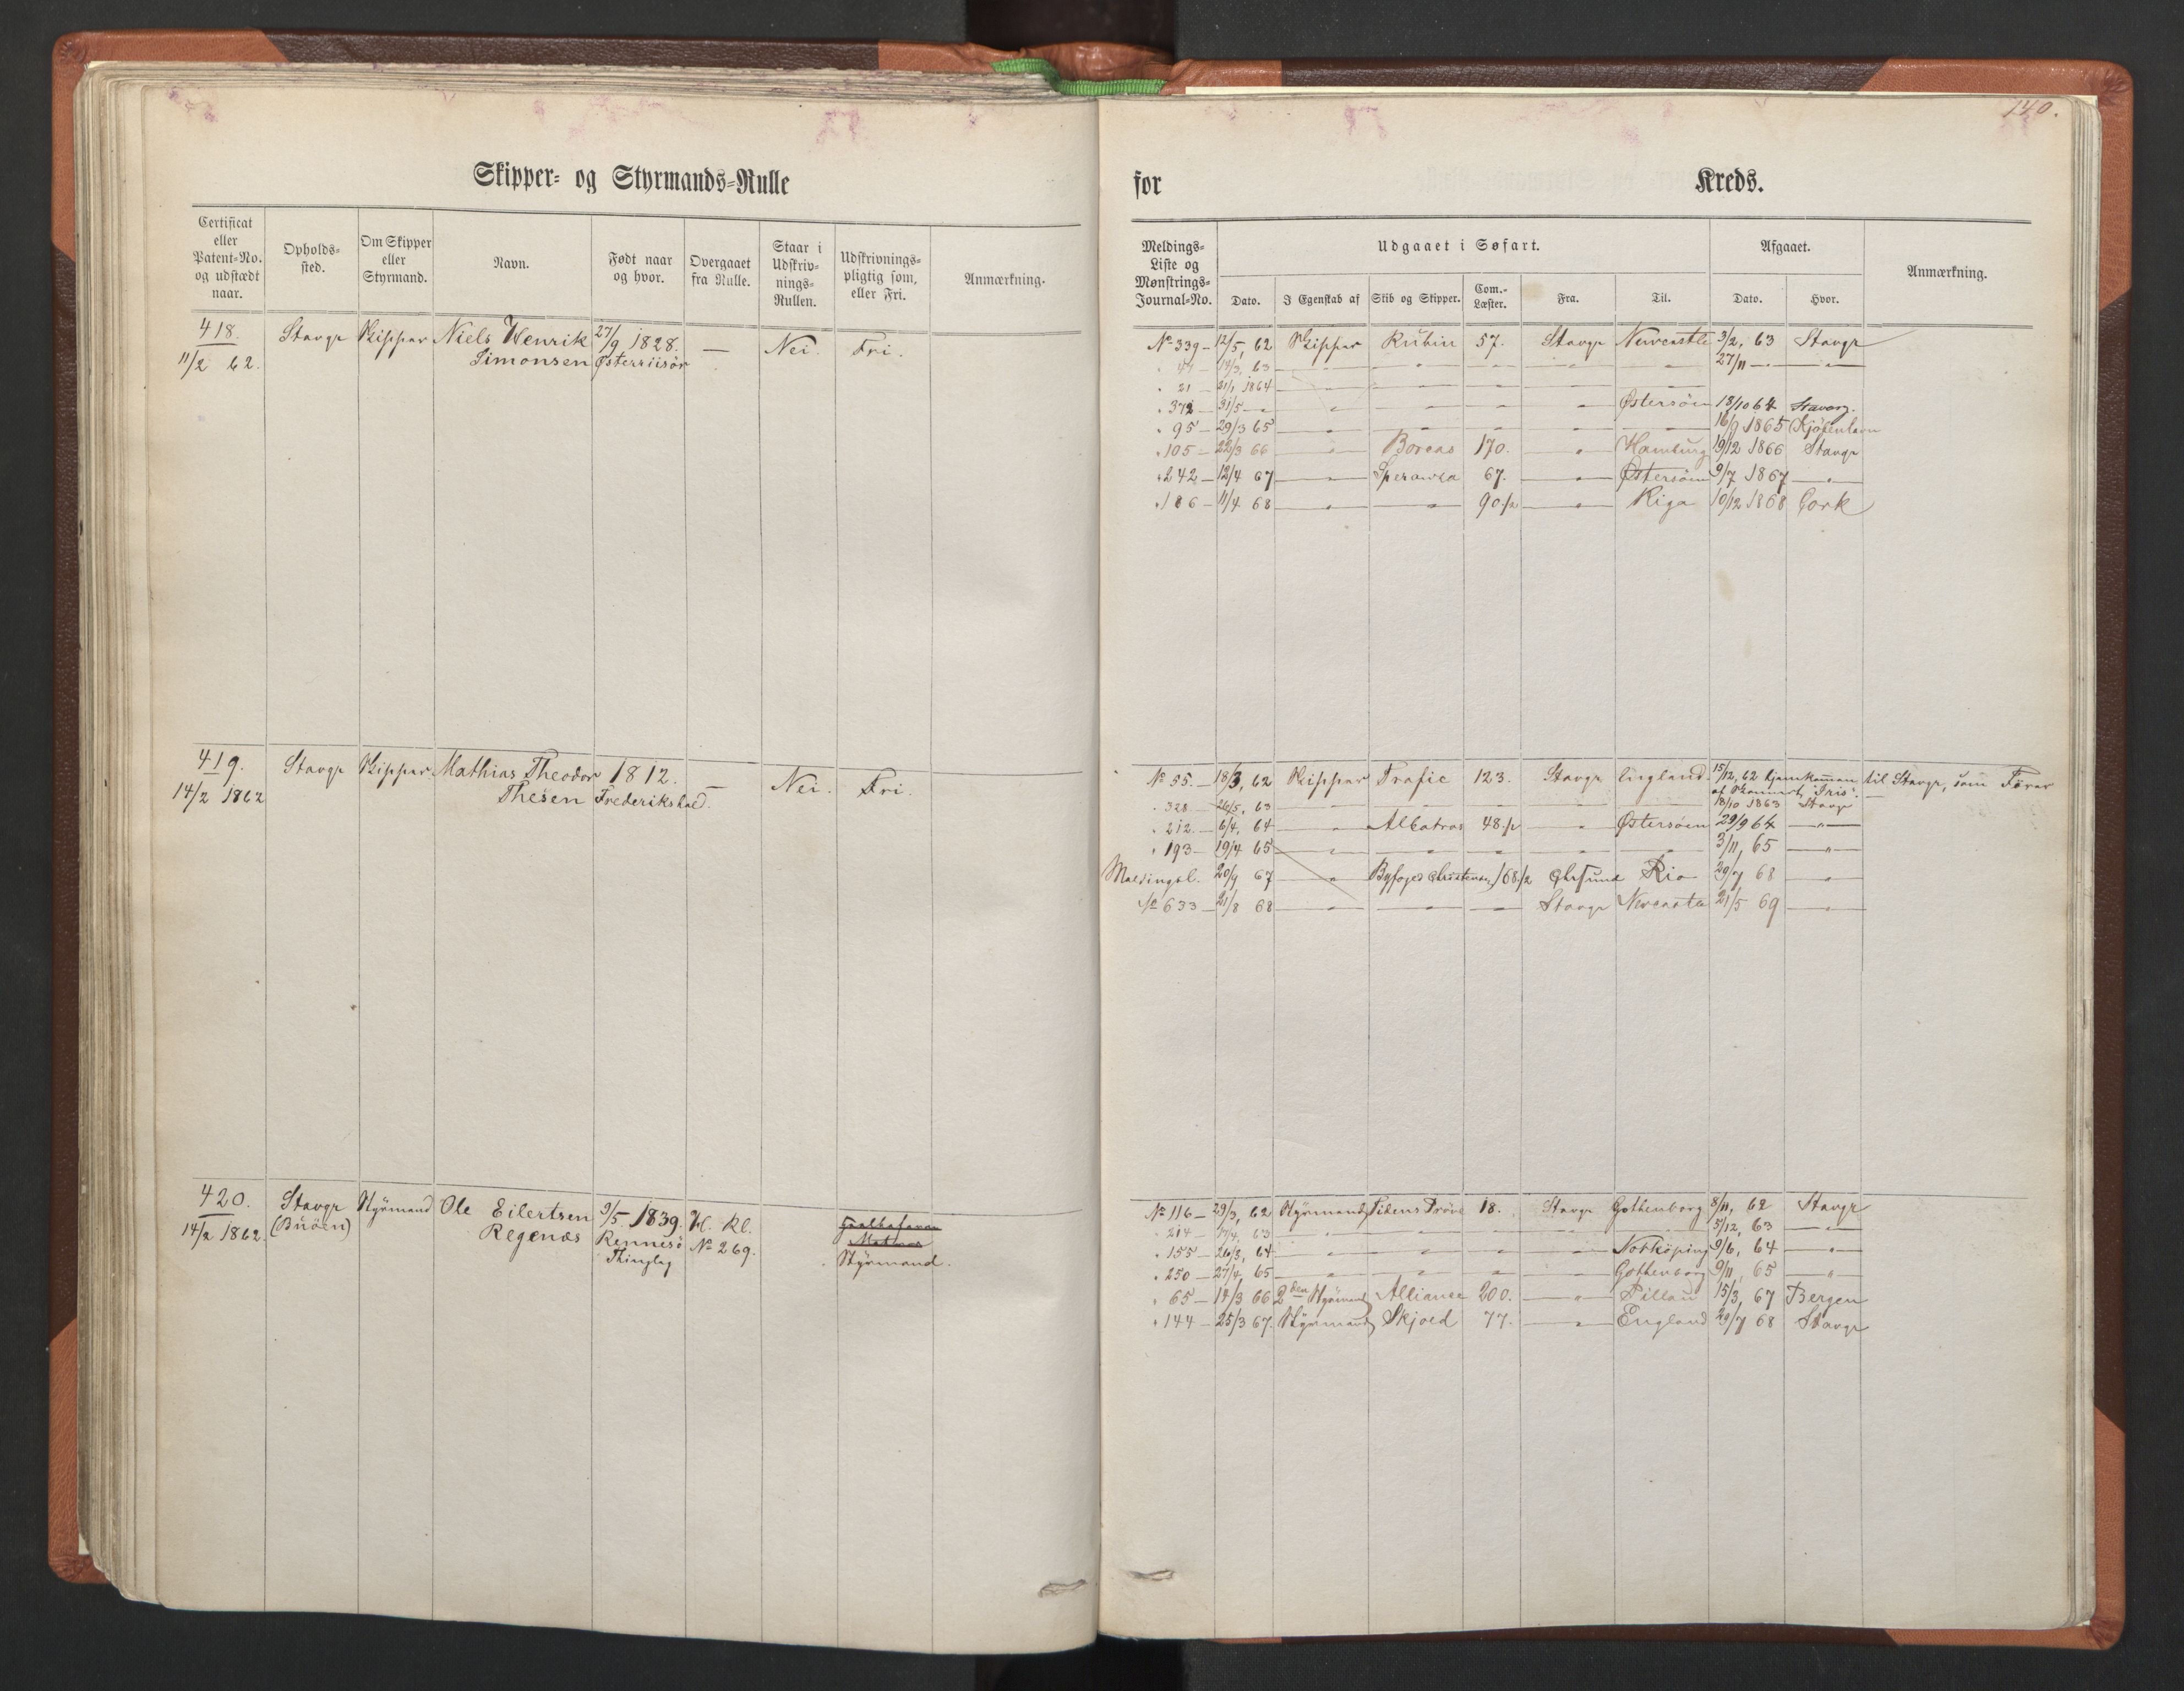 140.
Skipper- og Styrmands-Rulle
Certificat eller Patent-No. og udstædt naar.
Opholds-sted.
Om Skipper eller Styrmand.
Navn.
Født naar og hvor.
Overgaaet fra Rulle.
Staar i Udskriv-nings-Rullen.
Udskrivnings-pligtig som, eller Fri.
Anmærkning.
418. Stavgr Skipper Niels Henrik 27/9 1828. — Nei. Fri.
11/2 62. Simonsen Østerriisör
419. Stavgr Skipper Mathias Theodor 1812. — Nei. Fri.
14/2 1862 Thesen Frederikshald.
420. Stavgr Styrmand Ole Eilertsen 9/5 1839. Kl.
14/2 1862 (Buöen) Regenæs Rennesö No 269.
Thinglag Styrmand.
for Kreds.
Meldings-Liste og Mønstrings-Journal-No.
Udgaaet i Søfart.
Dato.
I Egenskab af
Skib og Skipper.
Com.-Læster.
Fra.
Til.
Afgaaet.
Dato.
Hvor.
Anmærkning.
No 339 – 12/5, 62 Skipper Rubin 57. Stavgr Newcastle 3/2, 63 Stavgr
" 44 – 14/3, 63 — " — " — " — " — 27/11 — " — " —
" 21 – 21/1 1864 — " — " — " — " —
" 372 – 31/5 — " — " — " — " — " Østersöen 18/10 64 Stavang.
" 95 – 29/3 65 — " — " — " — " — 16/9 1865 Kjöbenhavn
" 105 – 22/3 66 — " — Boreas 170. — " — Hamburg 19/12 1866 Stavgr
" 242 – 12/4 67 — " — Speranza 67. — " — Østersöen 9/7 1867 — " —
" 186 – 11/4 68 — " — " — 90 1/2 — " — Riga 10/12 1868 Cork
No 55 – 18/3, 62 Skipper Trafic 123. Stavgr England 15/12, 62 hjemkommen til Stavgr, som Förer
af Skonnert "Iris".
" 328 – 26/5, 63 — " — " — " — " — 18/10 1863 Stavgr
" 212 – 6/4, 64 — " — Albatros 48 1/2 — " — Østersöen 29/9 64 — " —
" 193 – 19/4 65 — " — " — " — " — 3/11, 65 — " —
Meldingsl. 20/9 67 — " — Byfoged Christensen 168 1/2 Rio 29/7 68 — " —
No 633 – 21/8 68 — " — " — " — Stavgr Newcastle 21/5 69 — " —
No 116 – 29/3, 62 Styrmand Tidens Pröve 18. Stavgr Gothenborg 8/11, 62 Stavgr
" 214 – 7/4, 63 — " — " — " — " — 5/12, 63 — " —
" 155 – 26/3, 64 — " — " — " — " — Norköping 9/6, 64 — " —
" 250 – 27/4, 65 — " — " — " — " — Gothenborg 9/11, 65 — " —
" 65 – 14/3 66 2den Styrmand Alliance 200. — " — Pillau 15/3, 67 Bergen
" 144 – 25/3 67. Styrmand Skjold 77. — " — England 29/7 68 Stavgr